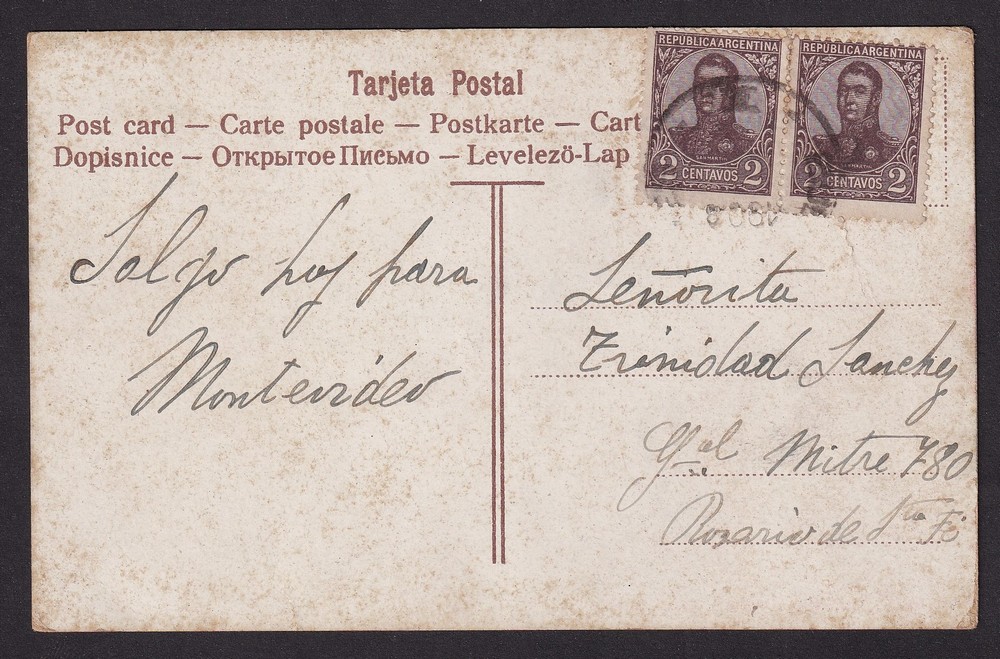 Tarjeta Postal
Post card — Carte postale — Postkarte — Cart
Dopisnice — Открытое Письмо — Levelezö-Lap
REPUBLICA ARGENTINA
SAN MARTIN
2 CENTAVOS 2
REPUBLICA ARGENTINA
SAN MARTIN
2 CENTAVOS 2
Salgo hoy para
Montevideo
Señorita
Trinidad Sanchez
Gral Mitre 780
Rosario de Sta Fé